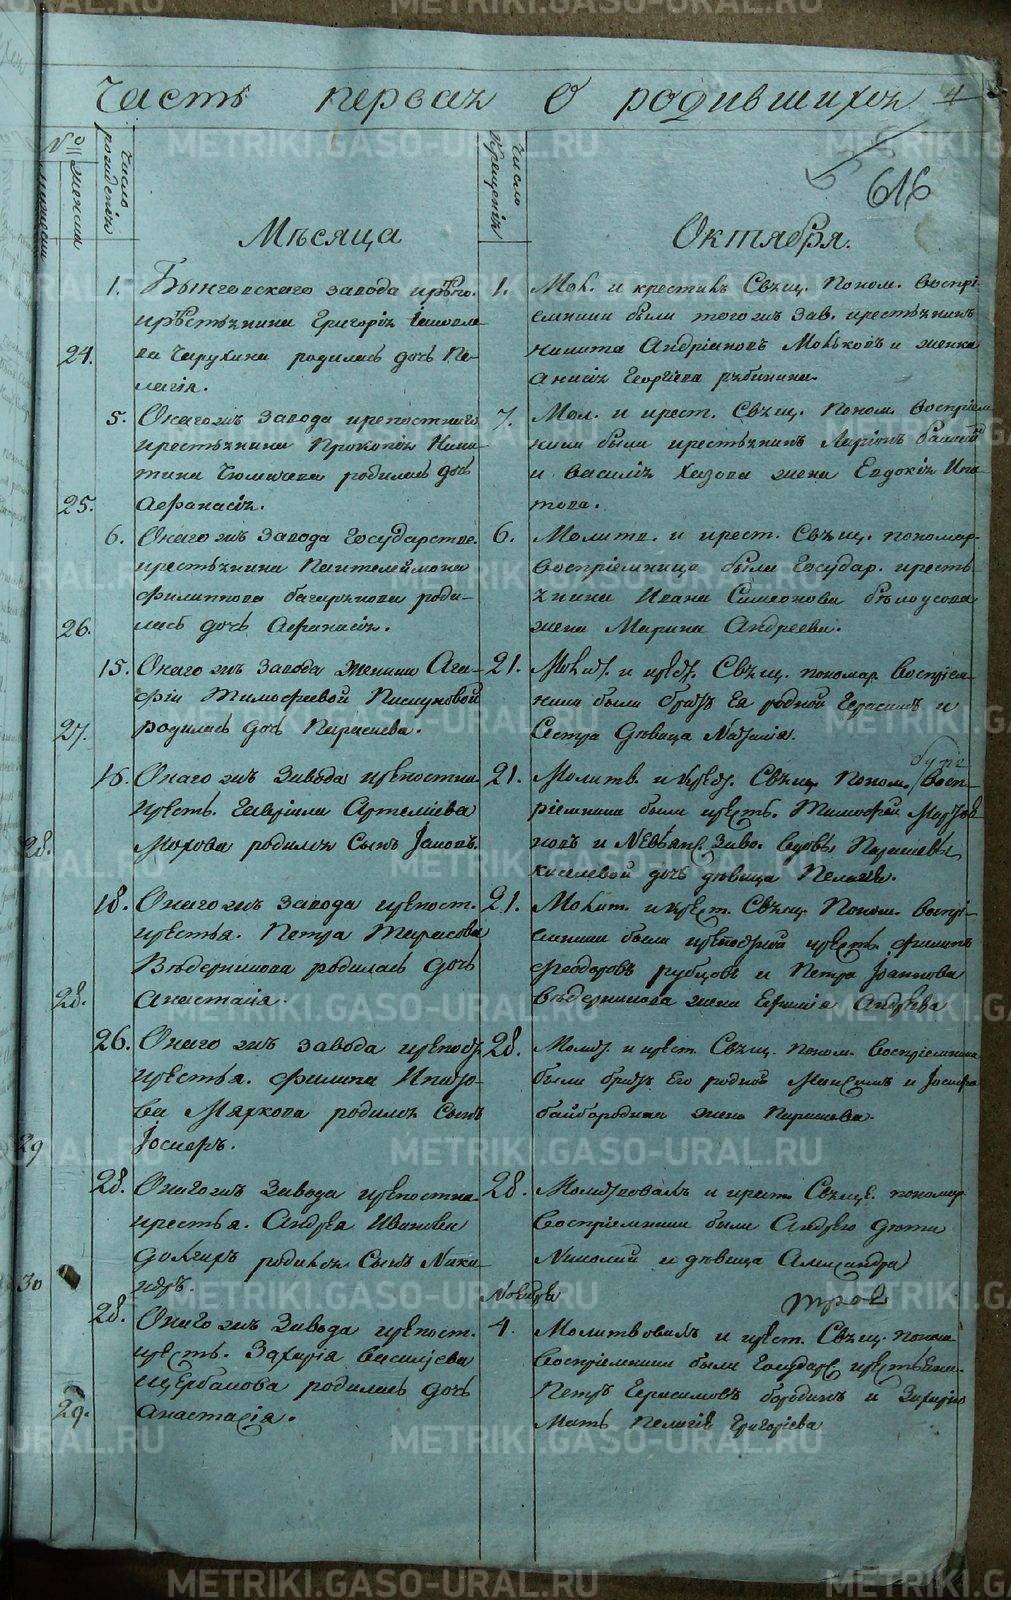 Часть первая О родившихся 4
№
мужеска
женска
Число рожденія
Число крещенія
616
Мѣсяца Октября.
24. 1. Бынговскаго завода крѣпо.
крѣстьянина Григорія
родилась дочь Пе-
лагія.
1. Мол. и крестилъ Свящ. Поном. Воспрі-
емники были того жъ Зав. крестьянинъ
Никита Андріановъ и женка
Анисія Георгіева
25. 5. Онаго жъ Завода крепостнаго
крестьянина Прокопія Ники-
тина родилась дочь
Афанасія.
7. Мол. и крест. Свящ. Поном. Воспріем-
ники были крестьянинъ Ларіонъ
и Василія Хазова жена Евдокія Игна-
това.
26. 6. Онаго жъ Завода Государствен.
крестьянина Пантелеймона
Филиппова родил-
ась дочь Афанасія.
6. Молитв. и крест. Свящ. пономар.
Воспріемница была Государ. кресть-
янина Ивана Симеонова Бѣлоусова
жена Марина Андреева.
27. 15. Онаго жъ Завода женки Ага-
фіи Тимофеевой Пискуновой
родилась дочь Параскева.
21. Молит. и крест. Свящ. пономар. Воспріем-
ники были братъ Ея родной Герасимъ и
Сестра Дѣвица Наталія.
28. 16. Онаго жъ Завода крѣпостна.
кресть. Гавріила Артеміева
Мохова родился Сынъ Іаковъ.
21. Молитв. и Крест. Свящ. Поном. Восп-
ріемники были кресть. Тимофей
и Невьянс. Заво. Вдовы Параскевы
Киселевой дочь дѣвица Пелагія.
28. 18. Онаго жъ Завода крѣпост.
крестья. Петра Тарасова
Вѣдерникова родилась дочь
Анастасія.
21. Молит. и крест. Свящ. Поном. Воспрі-
емники были крѣпостной кресть. Филипъ
Феодоровъ Рубцовъ и Петра Іоаннова
Вѣдерникова жена Андрѣева
29 26. Онаго жъ Завода крѣпост.
крестья. Филипа Игнато-
ва Мяркова родился Сынъ
Іосифъ.
28. Молит. и крест. Свящ. Поном. Воспріемники
были братъ Его родной Максимъ и Іосифа
Байбородина жена Параскева.
30 28. Онаго жъ Завода крѣпостна.
крестья. Андрея
родился Сынъ Ника-
норъ.
28. Молитвовалъ и крест. Свяще. пономар.
Воспріемники были Андрею дѣти
Николай и дѣвица Александра
29. 28. Онаго жъ Завода крѣпост.
кресть. Захарія Василіева
Щербакова родилась дочь
Анастасія.
Ноября
4. Молитвовалъ и крест. Свящ. понома.
Воспріемники были Государс. крестьяни.
Петръ Герасимовъ Бородинъ и Захарію
Мать Пелагія Григоріева